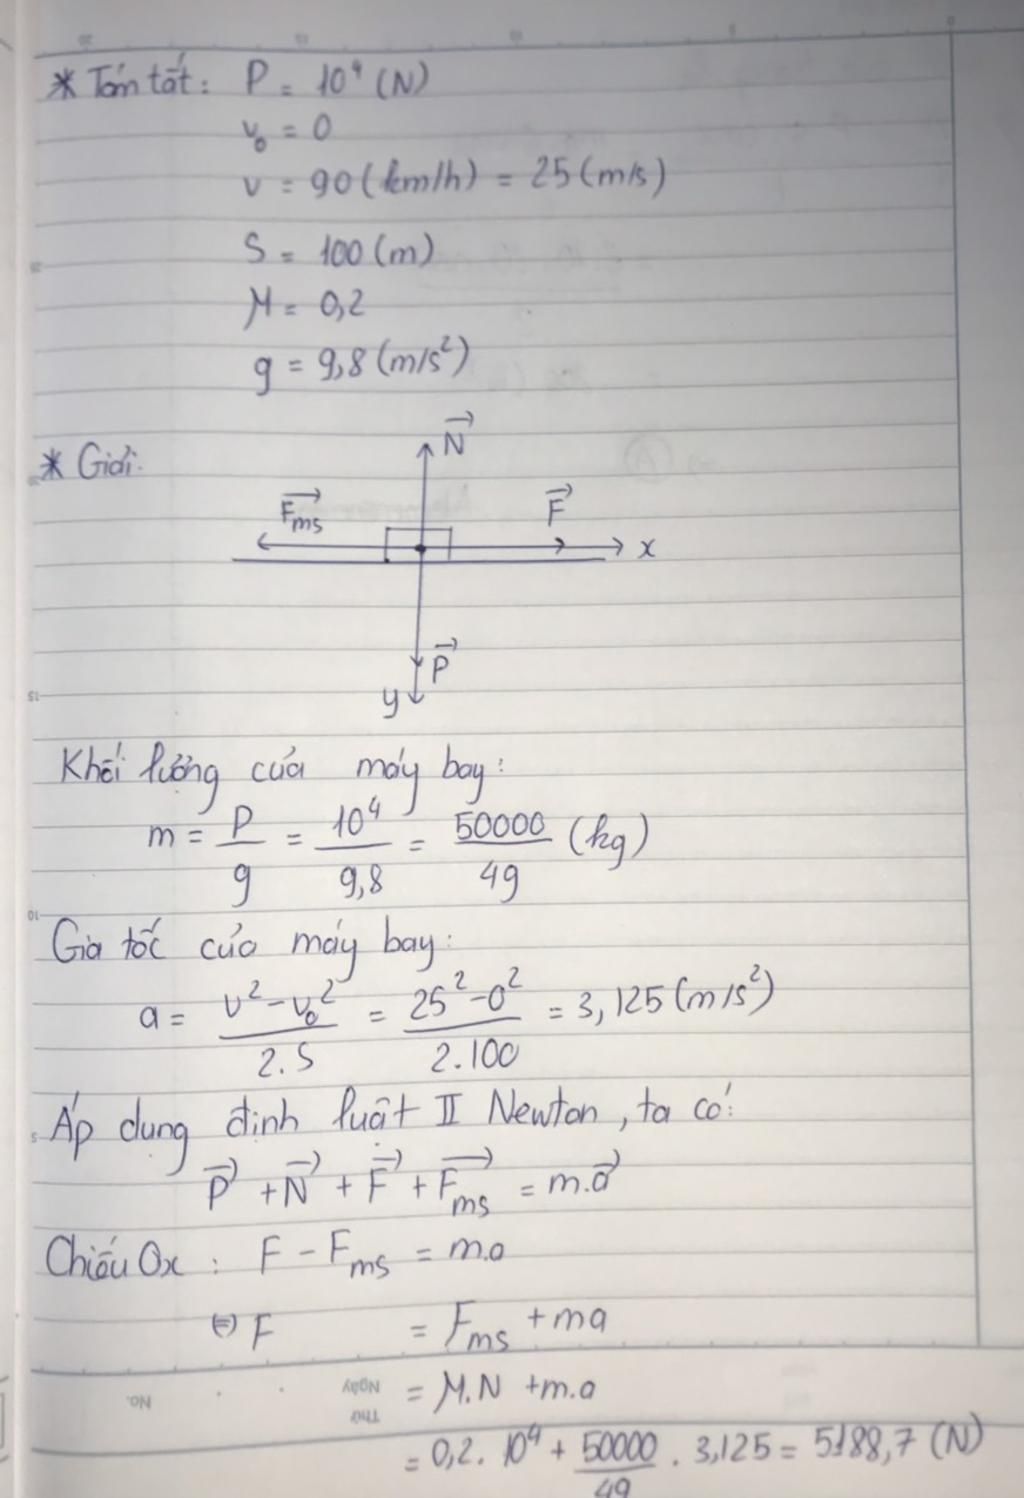 * Tóm tắt: P = 10⁴ (N)
v₀ = 0
v = 90 (km/h) = 25 (m/s)
S = 100 (m)
μ = 0,2
g = 9,8 (m/s²)
* Giải:
N
Fms
F
x
P
y
Khối lượng của máy bay:
m = P/g = 10⁴/9,8 = 50000/49 (kg)
Gia tốc của máy bay:
a = (v² - v₀²)/(2.S) = (25² - 0²)/(2.100) = 3,125 (m/s²)
Áp dụng định luật II Newton, ta có:
P + N + F + Fms = m.a
Chiếu Ox: F - Fms = m.a
⇔ F = Fms + ma
= μ.N + m.a
= 0,2. 10⁴ + 50000/49 . 3,125 = 5188,7 (N)
No.
Ngày
Thứ
20
15
10
5
0
20
15
10
5